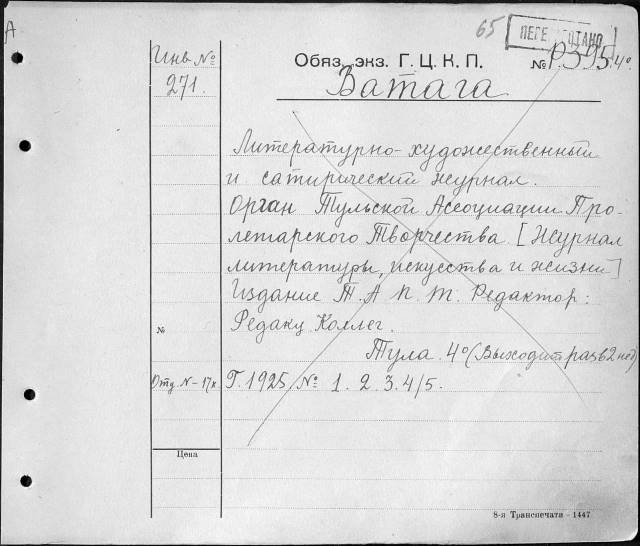 А
65
ПЕРЕ
Инв №
271.
Обяз. экз. Г. Ц. К. П.
№ Р395/4°
Ватага
Литературно-художественный
и сатирический журнал.
Орган Тульской Ассоциации Про-
летарского Творчества [Журнал
литературы, искусства и жизни]
Издание Т. А. П. Т. Редактор:
Редакц Коллег.
№
Тула. 4° (Выходит раз в 2 нед)
Отд. N - 17к
Г. 1925, № 1. 2. 3. 4/5.
Цена
8-я Транспечати - 1447